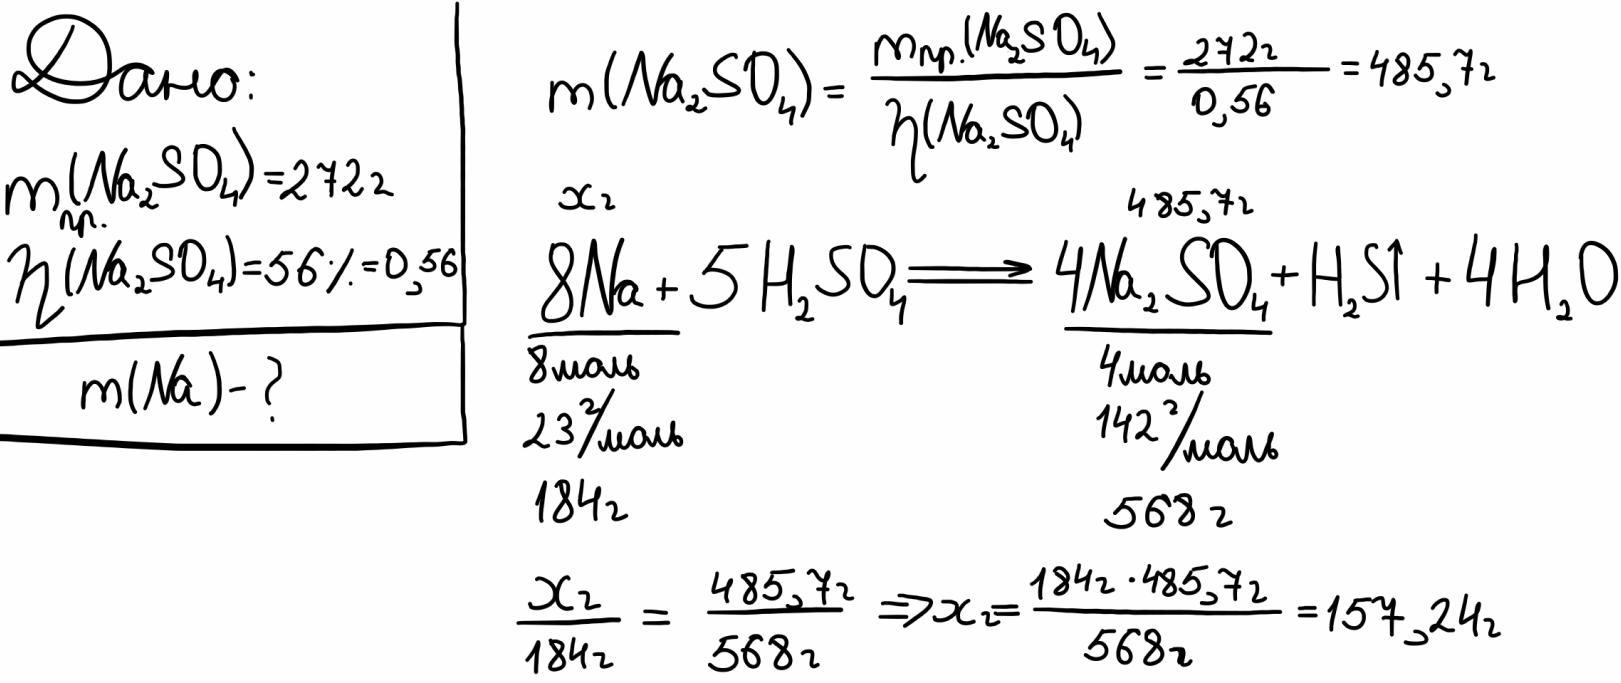 Дано:
m пр.(Na₂SO₄)=272г
η(Na₂SO₄)=56%=0,56
m(Na)-?
m(Na₂SO₄)= m пр.(Na₂SO₄) / η(Na₂SO₄) = 272г / 0,56 = 485,7г
xг 485,7г
8Na+5H₂SO₄⟹4Na₂SO₄+H₂S↑+4H₂O
8моль 4моль
23г/моль 142г/моль
184г 568г
xг / 184г = 485,7г / 568г ⇒ xг= 184г·485,7г / 568г =157,24г